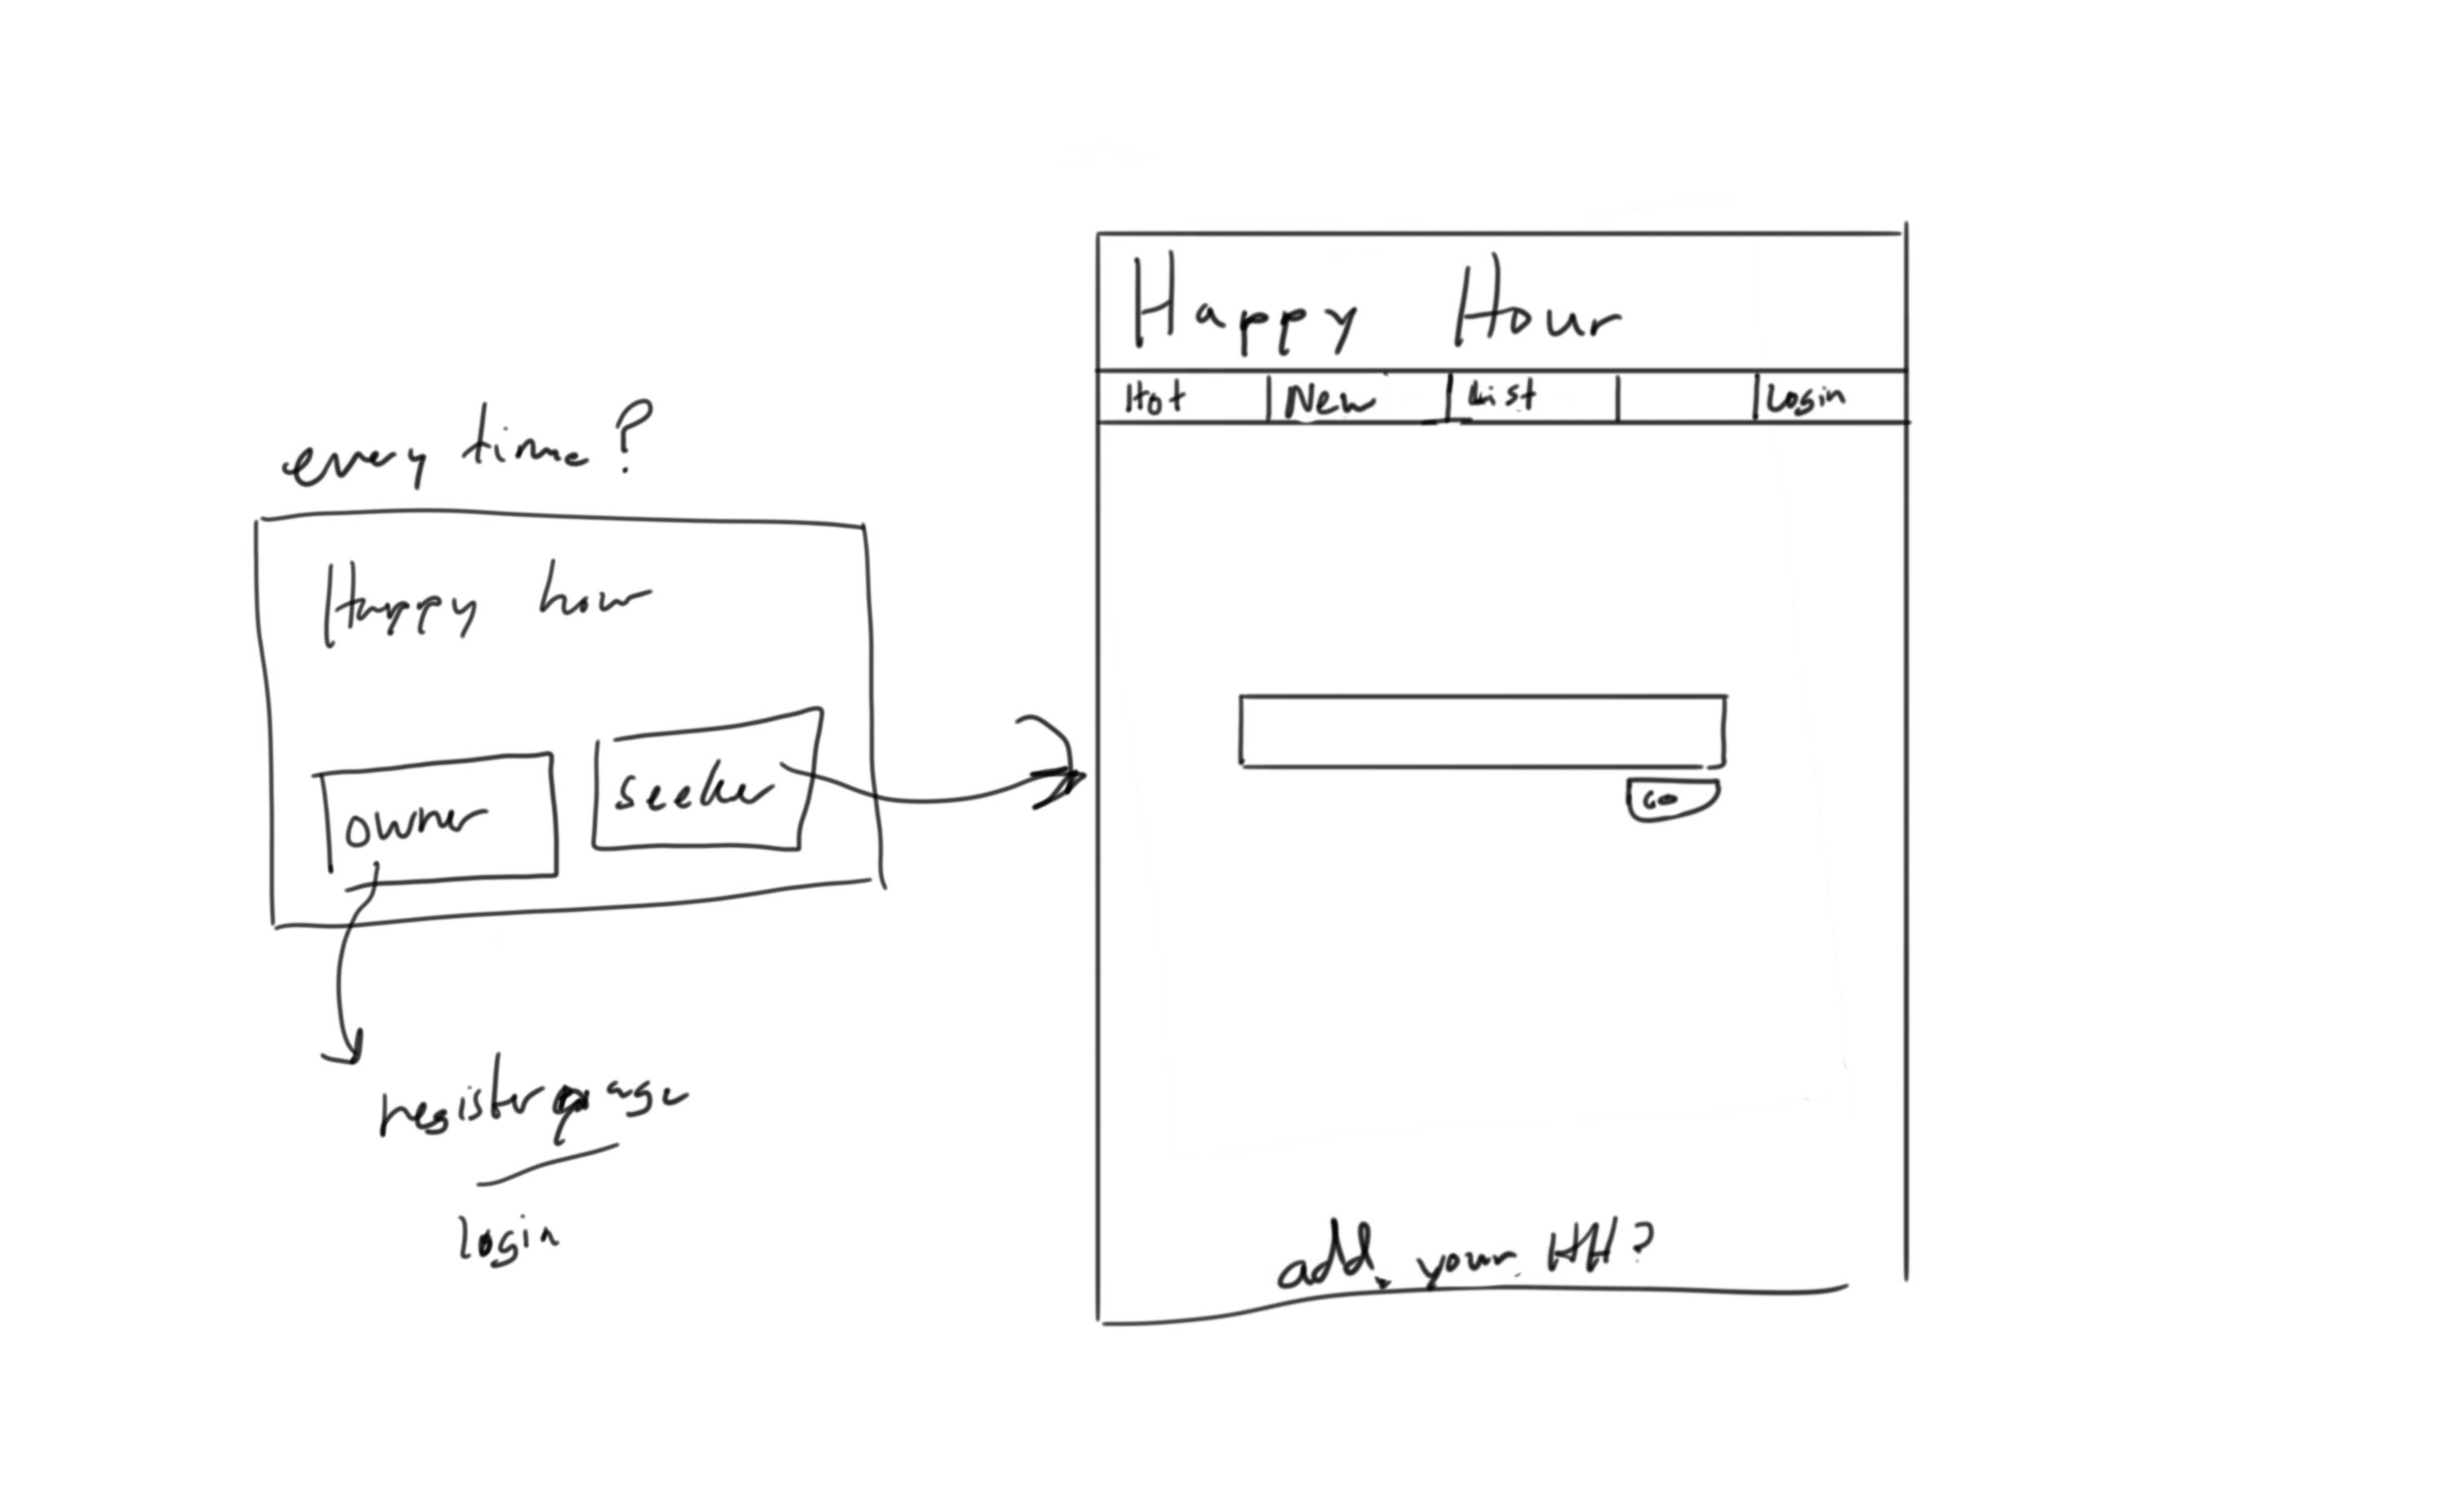 every time?
Happy hour
owner
seeker
register page
login
Happy Hour
Hot New List Login
Go
add your HH?